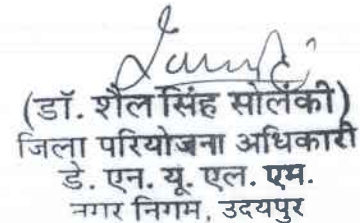 (डॉ. शैल सिंह सोलंकी)
जिला परियोजना अधिकारी
डे. एन. यू. एल. एम.
नगर निगम, उदयपुर